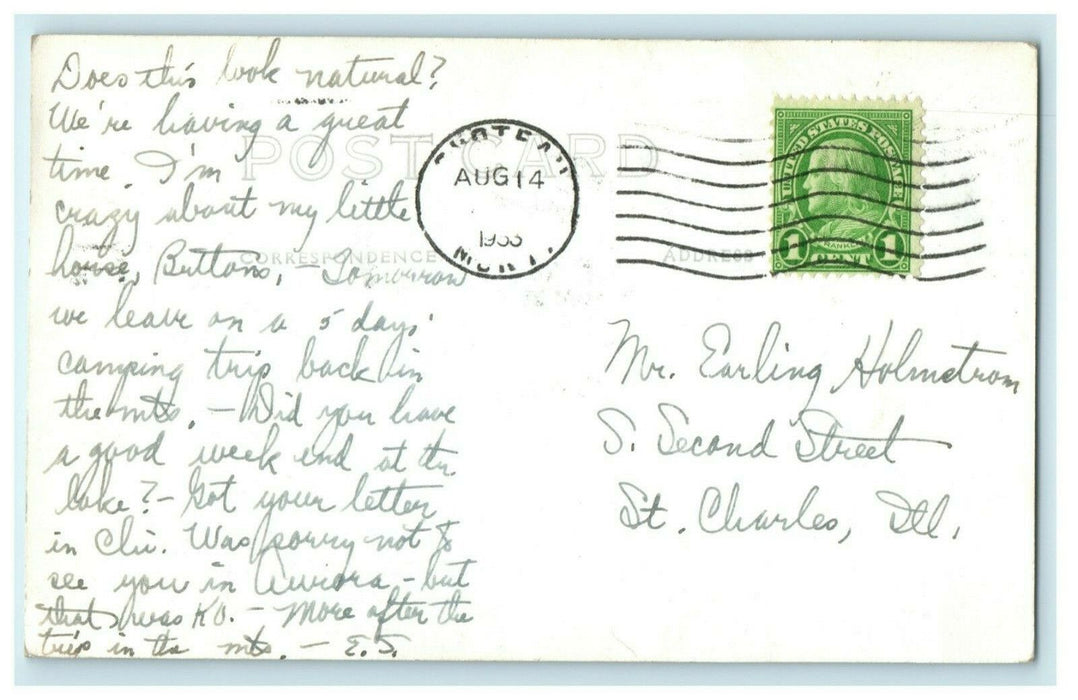 Does this look natural?
We're having a great
time. I'm
crazy about my little
horse, Buttons, - Tomorrow
we leave on a 5 days'
camping trip back in
the mts. - Did you have
a good week end at the
lake? - Got your letter
in Chi. Was sorry not to
see you in Aurora - but
that was KO. - More after the
trip in the mts. - E.J.
POST CARD
CORRESPONDENCE
ADDRESS
CHOTEAU
AUG 14
1933
MONT.
UNITED STATES POSTAGE
FRANKLIN
1 CENT 1
Mr. Earling Holmstrom
S. Second Street
St. Charles, Ill.